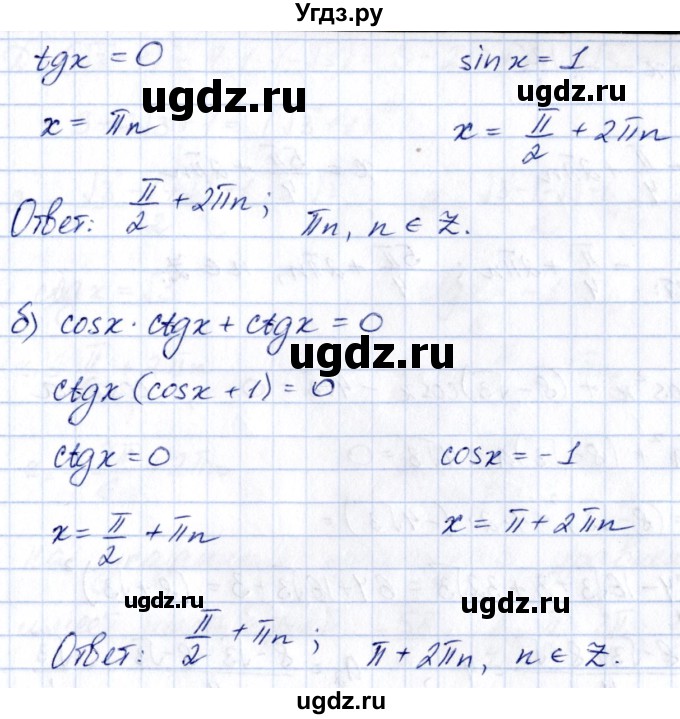 Угдз.ру
tgx = 0 sinx = 1
ugdz.ru ugdz.ru
x = πn x = π/2 + 2πn
Ответ: π/2 + 2πn; πn, n ∈ Z.
б) cosx · ctgx + ctgx = 0
ugdz.ru
ctgx (cosx + 1) = 0
ctgx = 0 cosx = -1
x = π/2 + πn x = π + 2πn
ugdz.ru ugdz.ru
Ответ: π/2 + πn; π + 2πn, n ∈ Z.
ugdz.ru